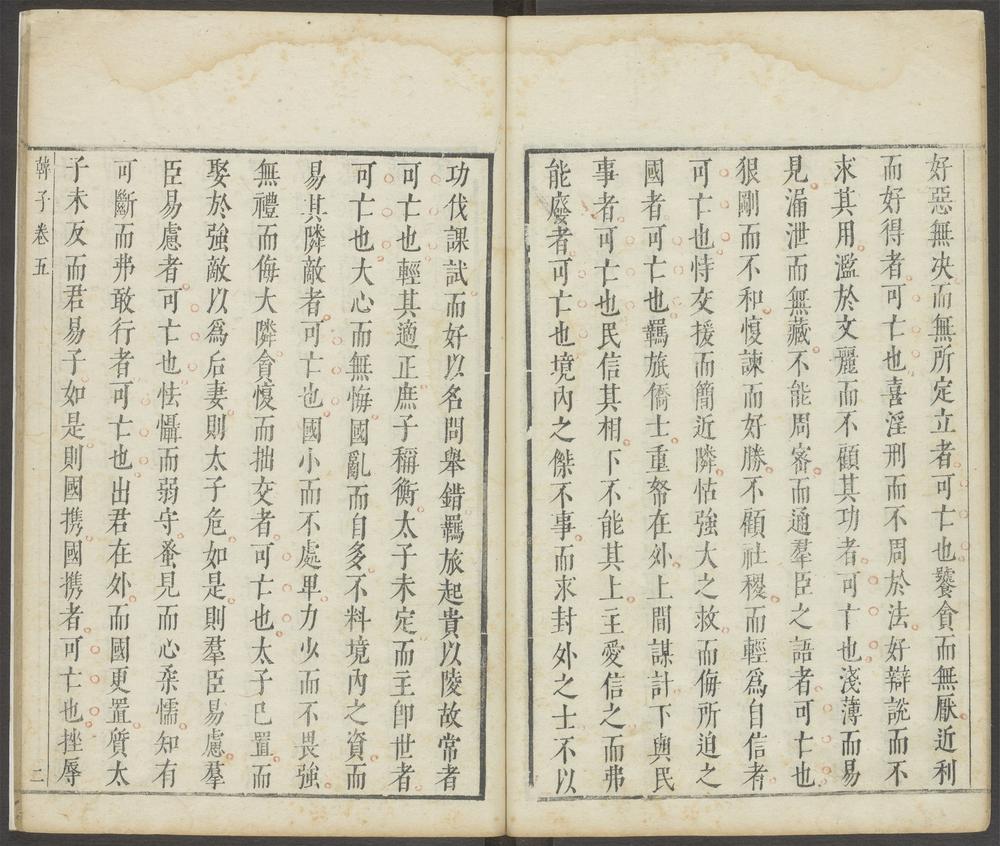 好惡無决而無所定立者可亡也饕貪而無厭近利
而好得者可亡也喜淫刑而不周於法好辯說而不
求其用濫於文麗而不顧其功者可亡也淺薄而易
見漏泄而無藏不能周密而通羣臣之語者可亡也
狠剛而不和愎諫而好勝不顧社稷而輕爲自信者
可亡也恃交援而簡近隣怙強大之救而侮所迫之
國者可亡也羈旅僑士重帑在外上間謀計下與民
事者可亡也民信其相下不能其上主愛信之而弗
能廢者可亡也境內之傑不事而求封外之士不以
功伐課試而好以名問舉錯羈旅起貴以陵故常者
可亡也輕其適正庶子稱衡太子未定而主卽世者
可亡也大心而無悔國亂而自多不料境內之資而
易其隣敵者可亡也國小而不處卑力少而不畏強
無禮而侮大隣貪愎而拙交者可亡也太子已置而
娶於強敵以爲后妻則太子危如是則羣臣易慮羣
臣易慮者可亡也怯懾而弱守蚤見而心柔懦知有
可斷而弗敢行者可亡也出君在外而國更置質太
子未反而君易子如是則國携國携者可亡也挫辱
韓子卷五
二